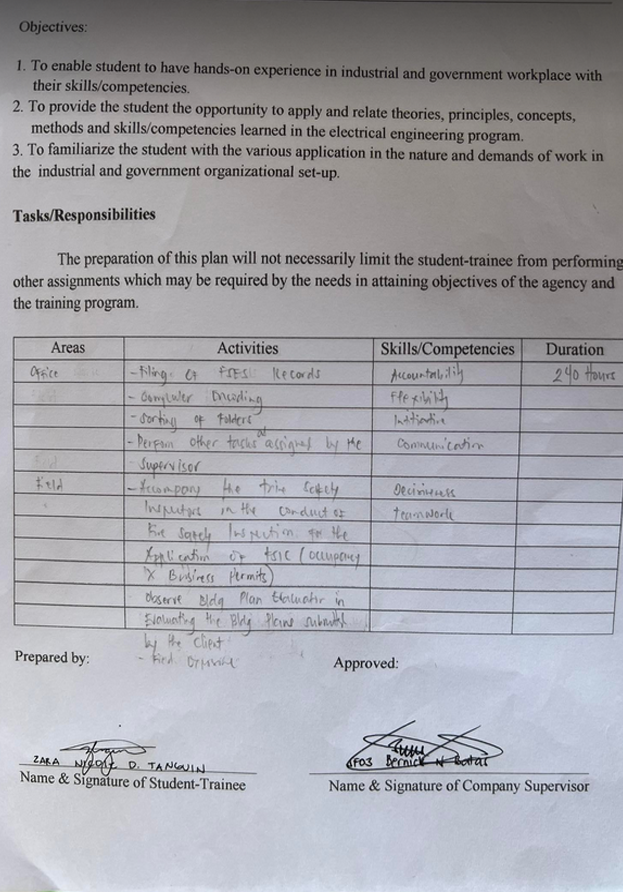 Objectives:
1. To enable student to have hands-on experience in industrial and government workplace with
their skills/competencies.
2. To provide the student the opportunity to apply and relate theories, principles, concepts,
methods and skills/competencies learned in the electrical engineering program.
3. To familiarize the student with the various application in the nature and demands of work in
the industrial and government organizational set-up.
Tasks/Responsibilities
The preparation of this plan will not necessarily limit the student-trainee from performing
other assignments which may be required by the needs in attaining objectives of the agency and
the training program.
Areas Activities Skills/Competencies Duration
Office - Filing of FSES Records Accountability 240 Hours
- Computer Encoding Flexibility
- Sorting of Folders Initiative
- Perform other tasks as assigned by the Communication
Supervisor
Field - Accompany the Fire Safety Deciniveness
Inspectors in the conduct of teamwork
Fire Safety Inspection for the
Application of FSIC (occupancy
& Business Permits)
Observe Bldg Plan Evaluator in
Evaluating the Bldg Plans submitted
by the client
Prepared by: - Approved:
ZARA NICOLE D. TANGUIN
Name & Signature of Student-Trainee
SFO3 Bernick N
Name & Signature of Company Supervisor